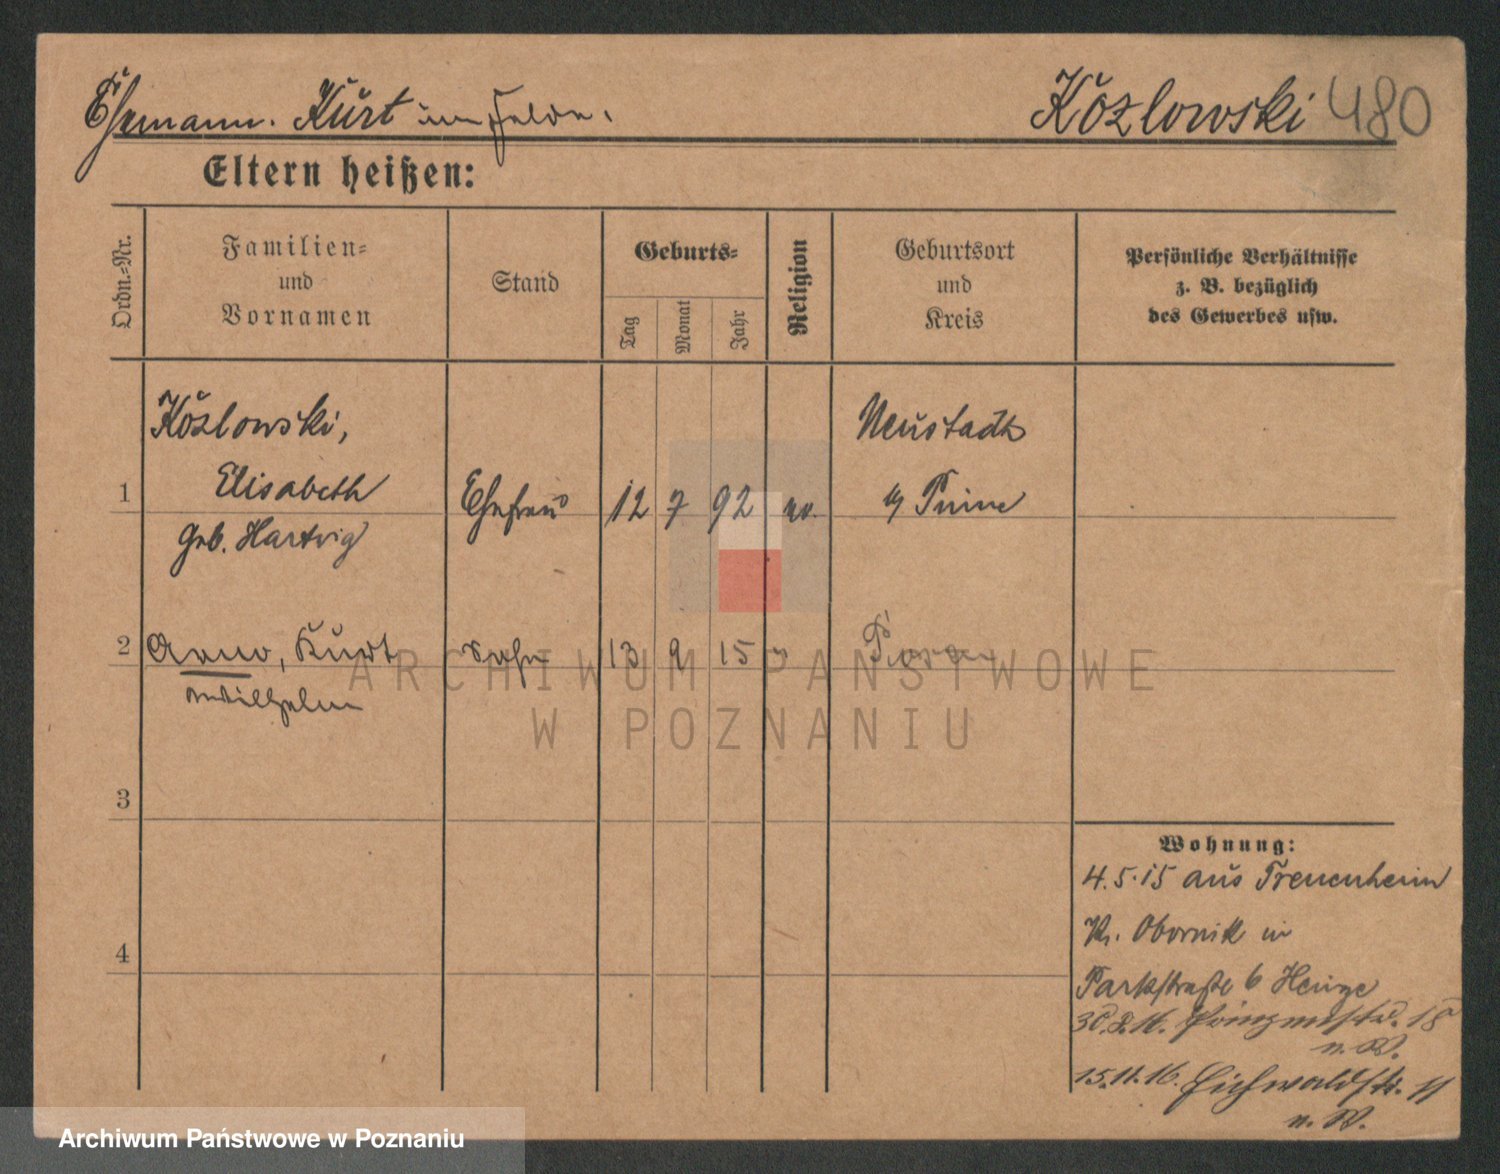 Ehemann. Kurt im Felde. Kozlowski 480
Eltern heißen:
Ordn.-Nr.
Familien-
und
Vornamen
Stand
Geburts-
Tag
Monat
Jahr
Religion
Geburtsort
und
Kreis
Persönliche Verhältnisse
z. B. bezüglich
des Gewerbes usw.
Kozlowski, Neustadt
1 Elisabeth Ehefrau 12 7 92 ev. b/ Pinne
geb. Hartwig
2 Arno, Kurt Sohn 13 9 15 " Posen
Wilhelm
3
4
Wohnung:
4.5.15 aus Treuenheim
Kr. Obornik in
Parkstraße 6 Heinze
30.8.16. Prinzenstr. 18
n. W.
15.11.16. Eichwaldstr. 11
n. W.
ARCHIWUM PAŃSTWOWE
W POZNANIU
Archiwum Państwowe w Poznaniu